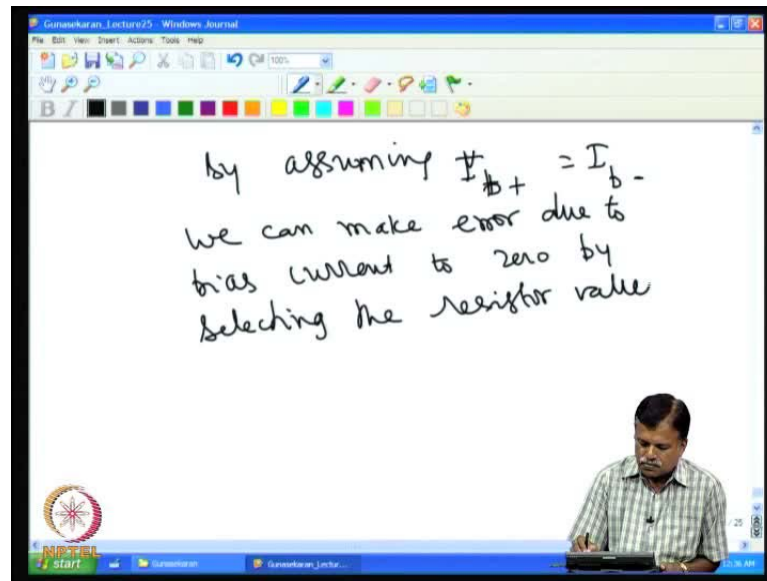 Gunasekaran_Lecture25 - Windows Journal
File Edit View Insert Actions Tools Help
100%
B I
By assuming I_b+ = I_b-
we can make error due to
bias current to zero by
selecting the resistor value
/ 25
NPTEL
start
Gunasekaran
Gunasekaran_Lectur...
12:36 AM